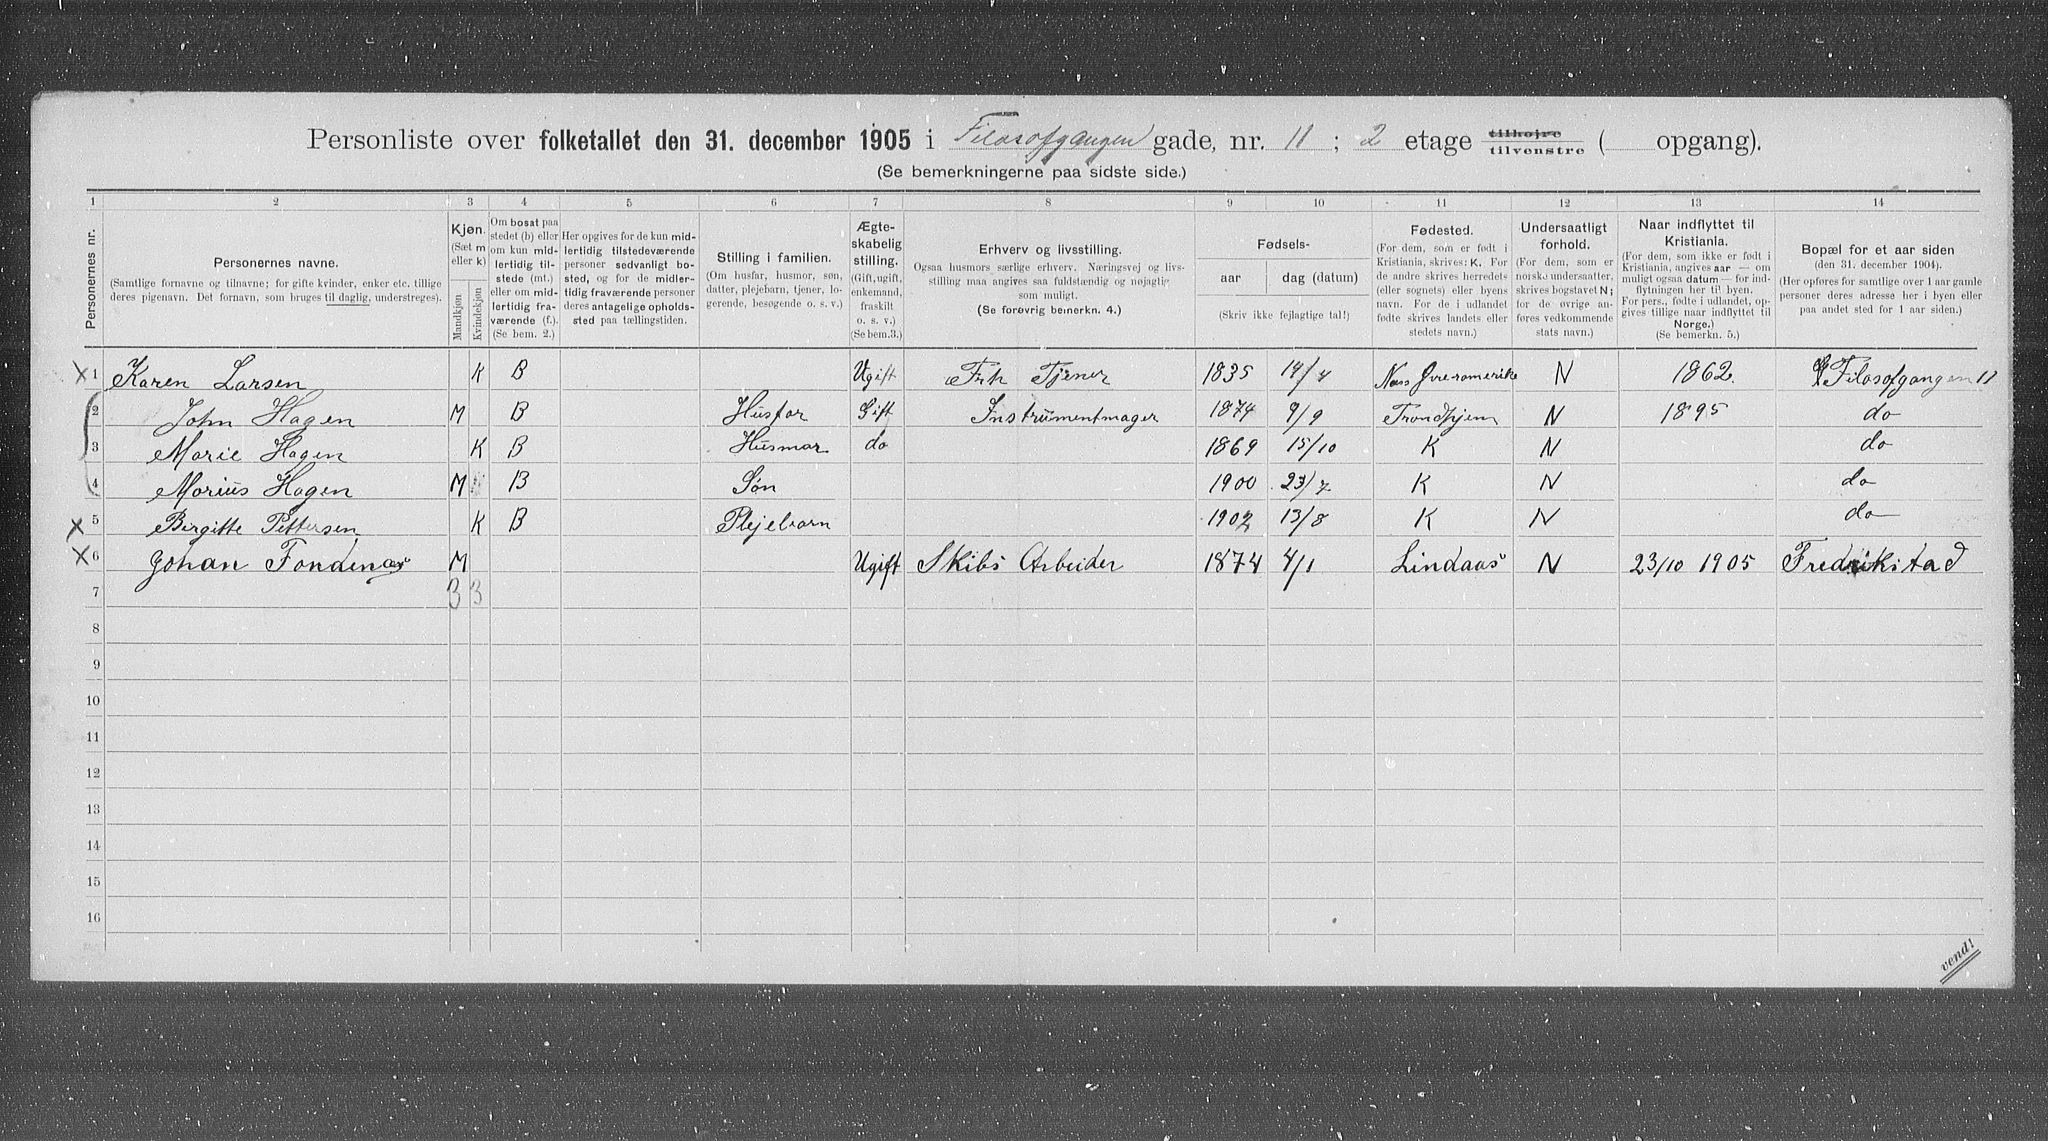 Personliste over folketallet den 31. december 1905 i Filosofgangen gade, nr. 11 ; 2 etage tilhøjre tilvenstre ( opgang).
(Se bemerkningerne paa sidste side.)
1 2 3 4 5 6 7 8 9 10 11 12 13 14
Personernes nr.
Personernes navne.
(Samtlige fornavne og tilnavne; for gifte kvinder, enker etc. tillige
deres pigenavn. Det fornavn, som bruges til daglig, understreges).
Kjøn.
(Sæt m
eller k)
Mandkjøn
Kvindekjøn
Om bosat paa
stedet (b) eller
om kun mid-
lertidig til-
stede (mt.)
eller om mid-
lertidig fra-
værende (f.).
(Se bem. 2.)
Her opgives for de kun mid-
lertidig tilstedeværende
personer sedvanligt bo-
sted, og for de midler-
tidig fraværende personer
deres antagelige opholds-
sted paa tællingstiden.
Stilling i familien.
(Om husfar, husmor, søn,
datter, plejebarn, tjener, lo-
gerende, besøgende o. s. v.)
Ægte-
skabelig
stilling.
(Gift, ugift,
enkemand,
fraskilt
o. s. v.)
(Se bem.3.)
Erhverv og livsstilling.
Ogsaa husmors særlige erhverv. Næringsvej og livs-
stilling maa angives saa fuldstændig og nøjagtig
som muligt.
(Se forøvrig bemerkn. 4.)
Fødsels-
aar
dag (datum)
(Skriv ikke fejlagtige tal!)
Fødested.
(For dem, som er født i
Kristiania, skrives: K. For
de andre skrives herredets
(eller sognets) eller byens
navn. For de i udlandet
fødte skrives landets eller
stedets navn.)
Undersaatligt
forhold.
(For dem, som er
norske undersaatter,
skrives bogstavet N;
for de øvrige an-
føres vedkommende
stats navn.)
Naar indflyttet til
Kristiania.
(For dem, som ikke er født i
Kristiania, angives aar — om
muligt ogsaa datum — for ind-
flytningen her til byen.
For pers., fødte i udlandet, op-
gives tillige naar indflyttet til
Norge.)
(Se bemerkn. 5.)
Bopæl for et aar siden
(den 31. december 1904).
(Her opføres for samtlige over 1 aar gamle
personer deres adresse her i byen eller
paa andet sted for 1 aar siden.)
x 1 Karen Larsen K B Ugift Frh Tjener 1835 14/4 Næs Øvreromerike N 1862. Filosofgangen 11
2 John Hagen M B Husfar Gift Instrumentmager 1874 9/9 Trondhjem N 1895 do
3 Marie Hagen K B Husmor do 1869 15/10 K N do
4 Marius Hagen M B Søn 1900 23/7 K N do
x 5 Birgitte Pettersen K B Plejebarn 1902 13/8 K N do
x 6 Johan Fondenæs M Ugift Skibs Arbeider 1874 4/1 Lindaas N 23/10 1905 Fredrikstad
7 3 3
8
9
10
11
12
13
14
15
16
vend!